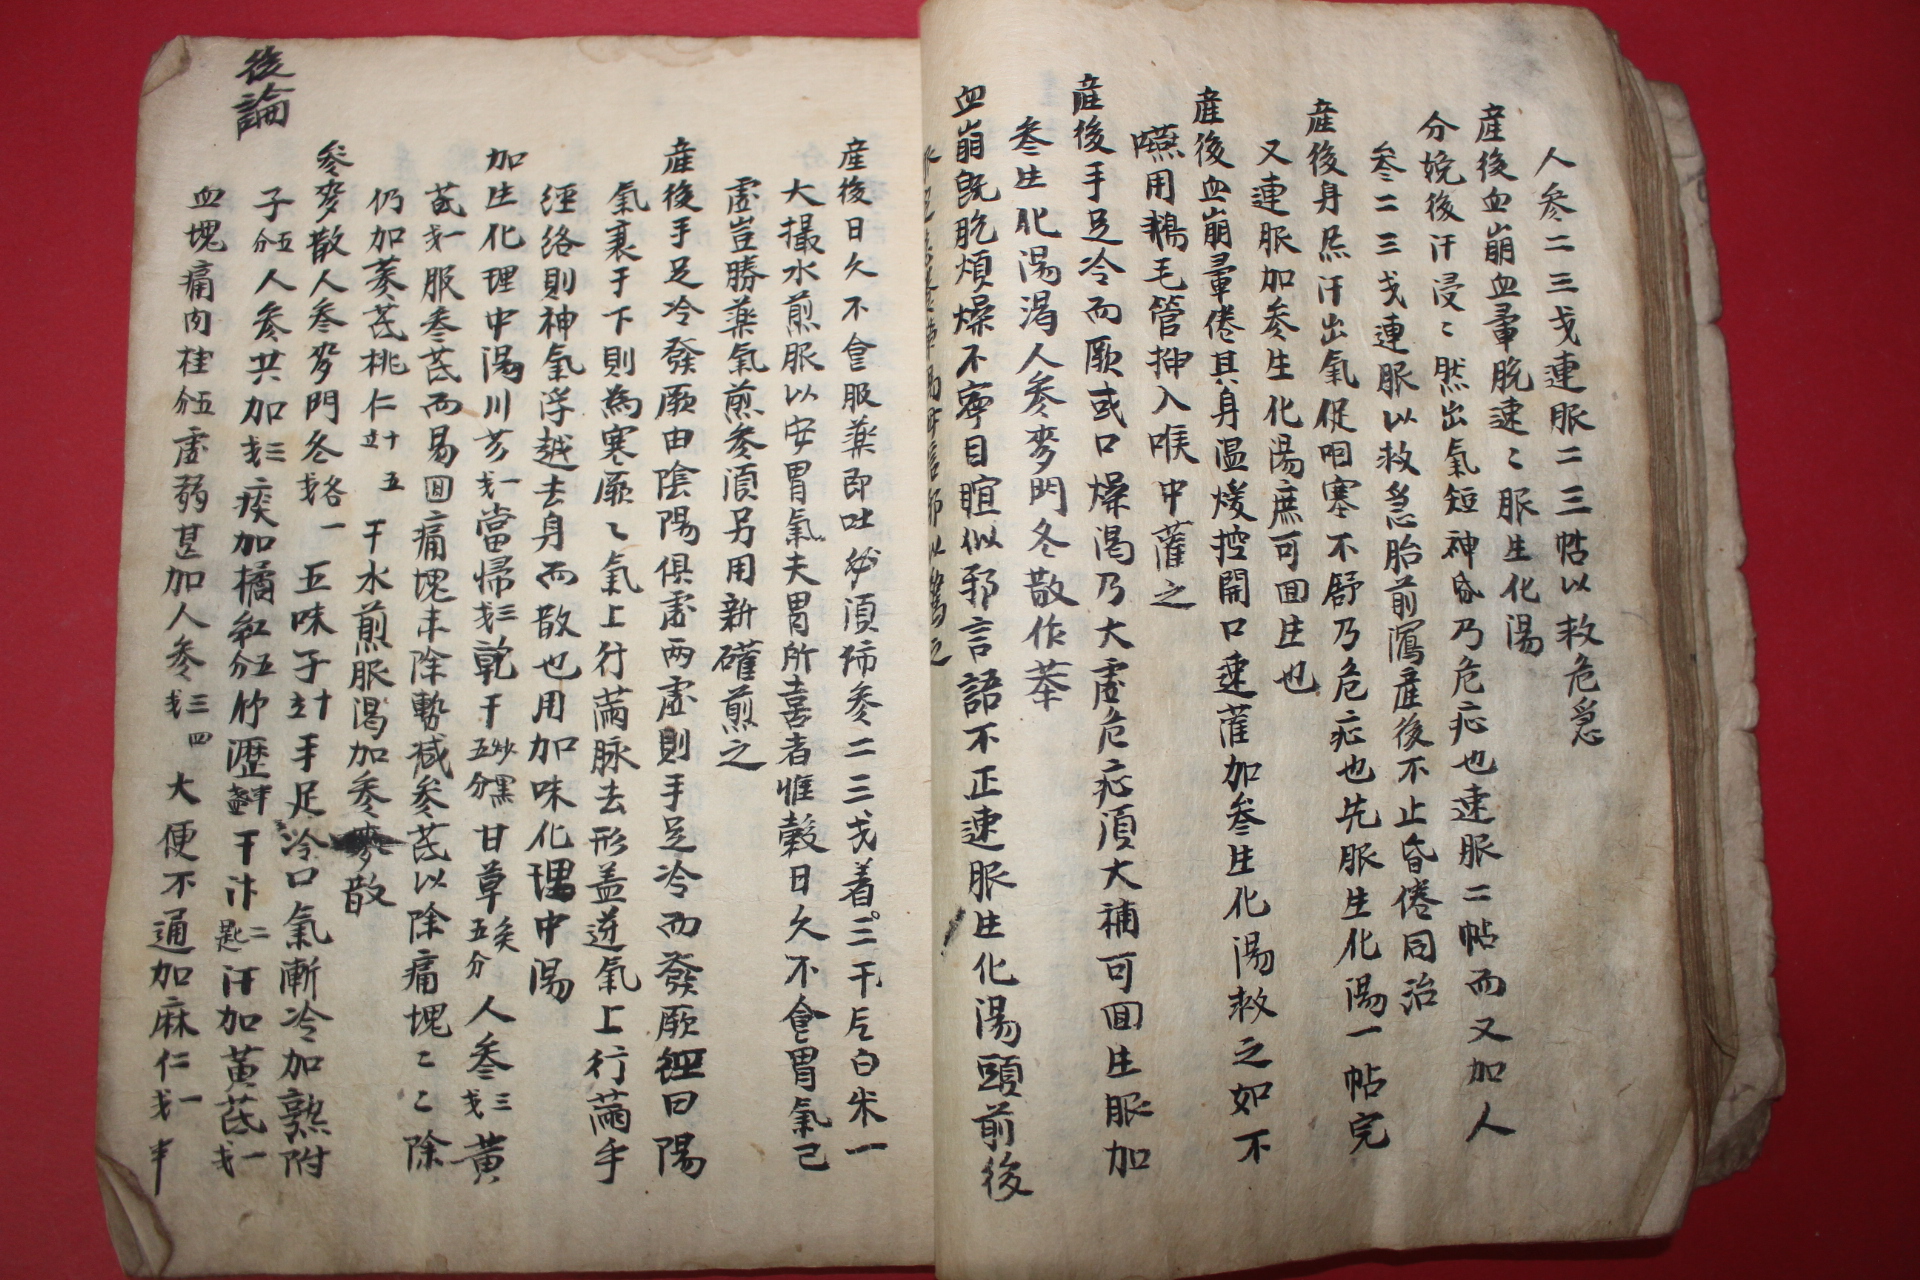 人參二三戔連服二三帖以救危急
産後血崩血暈脫速〻服生化湯
分娩後汗浸〻然出氣短神昏乃危症也速服二帖而又加人
參二三戔連服以救急胎前瀉産後不止昏倦同治
産後身热汗出氣促咽塞不舒乃危症也先服生化湯一帖完
又連服加參生化湯庶可回生也
産後血崩暈倦其身温煖控開口速灌加參生化湯救之如不
嚥用鵝毛管揷入喉中灌之
産後手足冷而厥或口燥渴乃大虛危症湏大補可回生服加
參生化湯渴人參麥門冬散作茶
血崩旣脫煩燥不寧目暄似邪言語不正速服生化湯頭前後
後論
産後日久不食服藥即吐必湏師參二三戔着二三干片白米一
大撮水煎服以安胃氣夫胃所喜者惟穀日久不食胃氣已
虛豈勝藥氣煎參湏另用新礶煎之
産後手足冷發厥由陰陽俱虛兩虛則手足冷而發厥經曰陽
氣衰于下則為寒厥〻氣上行滿脉去形盖逆氣上行滿乎
經絡則神氣浮越去身而散也用加味化理中湯
加生化理中湯川芎戔一當㷌戔三乾干炒黑五分甘草炙五分人參戔三黃
芪戔一服參芪而易回痛塊未除暫减參芪以除痛塊〻〻除
仍加蔘芪桃仁十立五干水煎服渴加參麥散
參麥散人參麥門冬各戔一五味子十立手足冷口氣漸冷加熟附
子五分人參共加戔三痰加橘紅五分竹瀝半盞干汁二匙汗加黃芪戔一
血塊痛肉桂五分虛弱甚加人參戔三四大便不通加麻仁戔一半